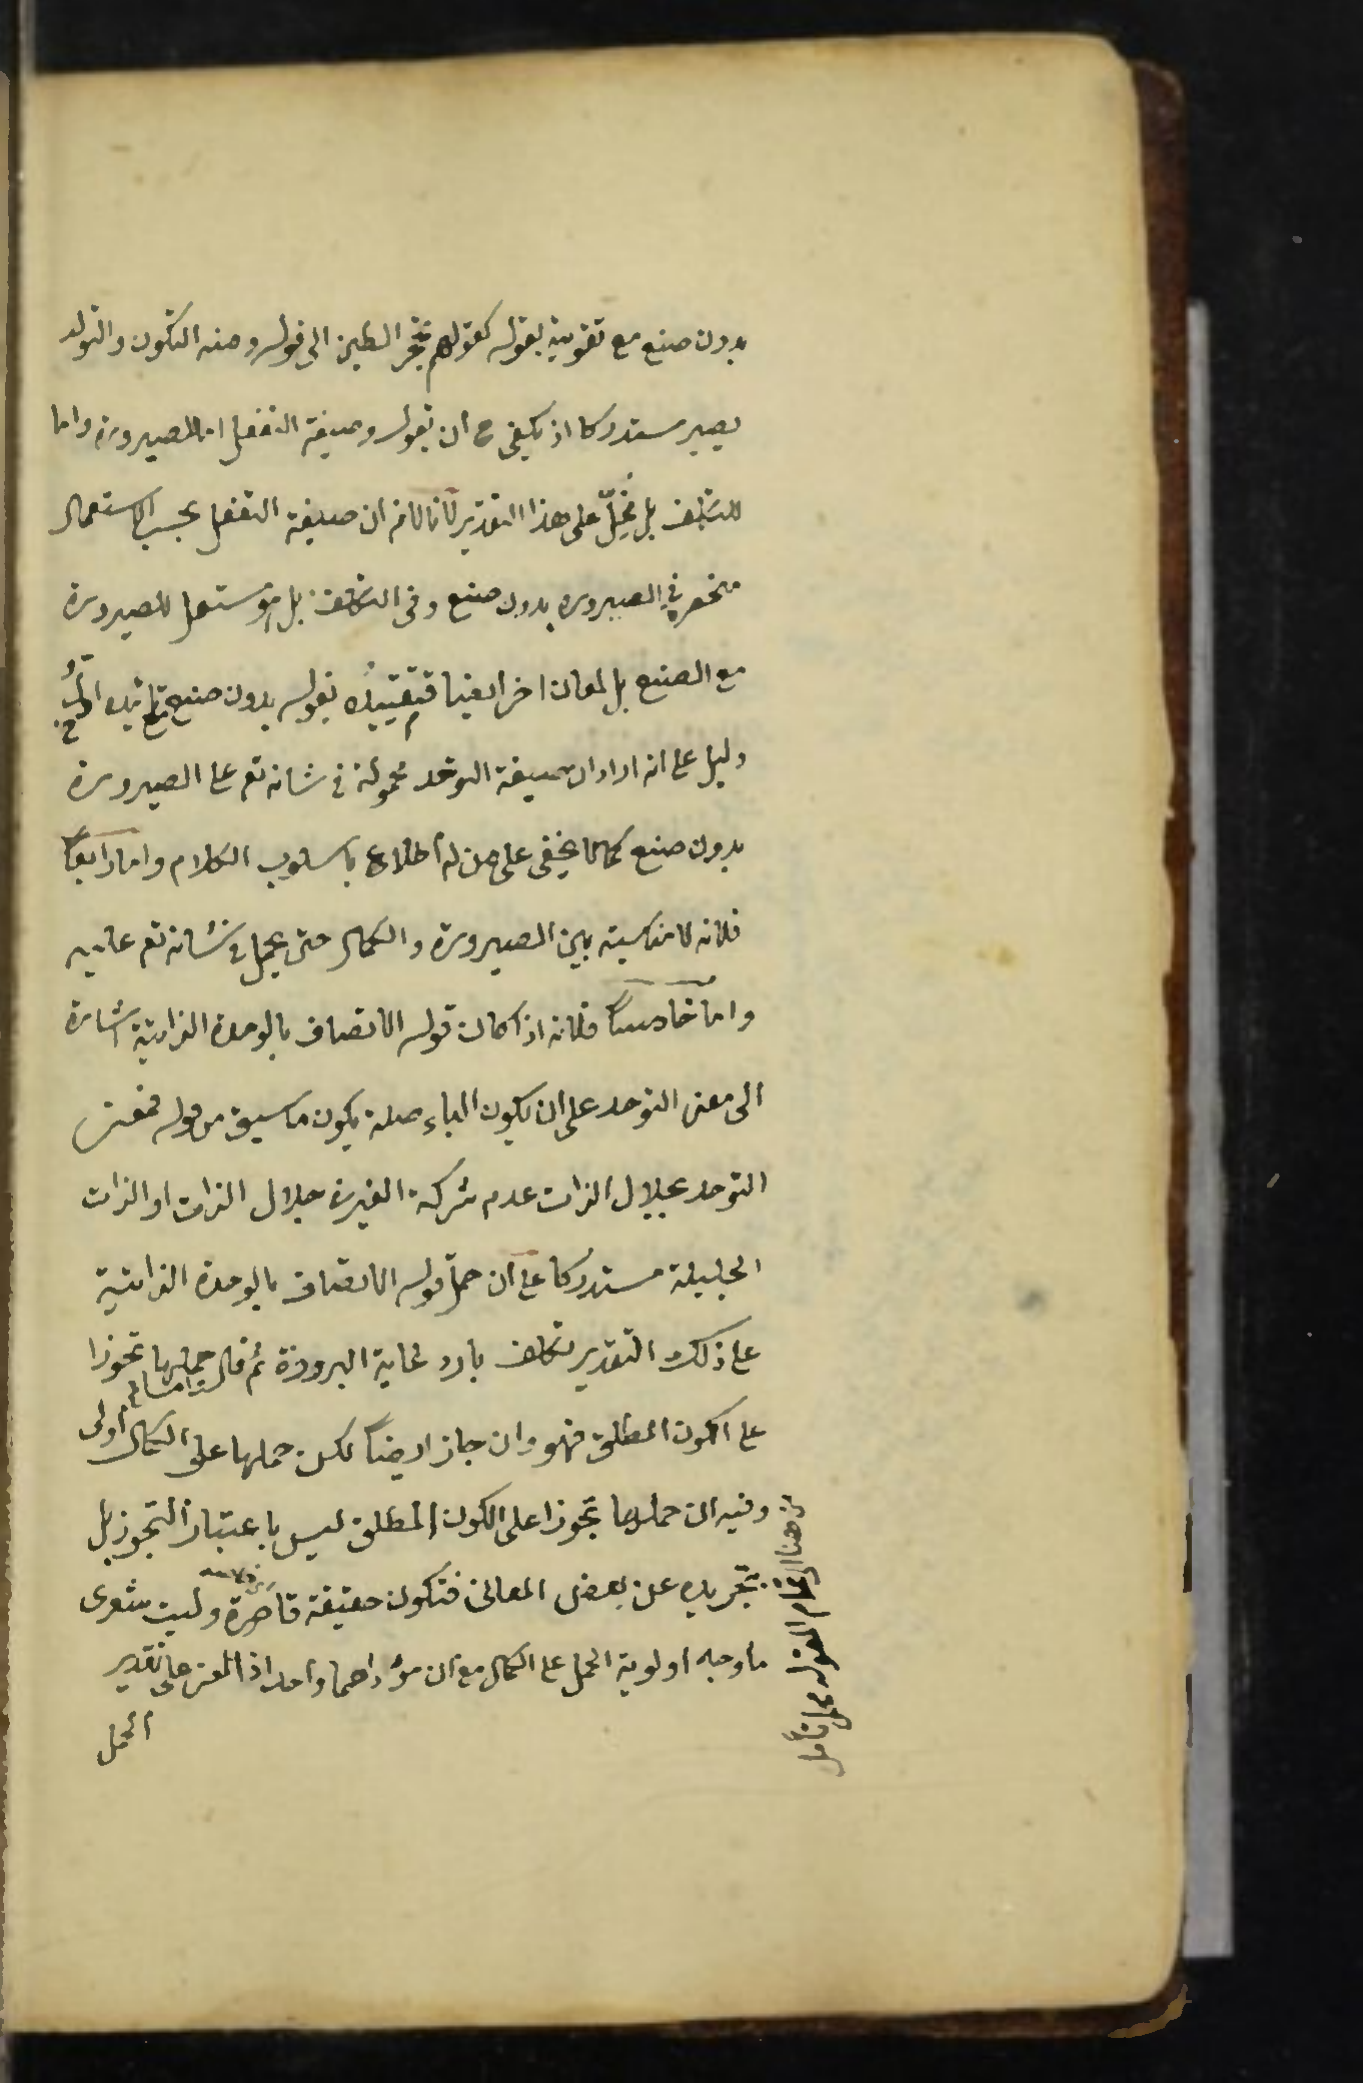 بدون صنع مع تقويته بقوله كقولهم تحجر الطين الى قوله ومنه التكون والتولد
يصير مستدركا اذ يكفى ح ان يقول وصيغة التفعل اما للصيرورة واما
للتكلف بل مُخِلّ على هذا التقدير لانا لانم ان صيغة التفعل بحسب الاستعمال
منحصرة فى الصيرورة بدون صنع وفى التكلف بل هو مستعمل للصيرورة
مع الصنع بل لمعان اخر ايضا فتقييده بقوله بدون صنع
دليل على انه اراد ان صيغة التوحد محمولة فى شانه تع على الصيرورة
بدون صنع كما لا يخفى على من له اطلاع باسلوب الكلام واما رابعاً
فلانه لا مناسبة بين الصيرورة والكمال حتى يحمل فى شانه تع عليه
واما خامساً فلانه اذا كان قوله الاتصاف بالوحدة الذاتية اشارة
الى معنى التوحد على ان يكون الباء صلة يكون ما سبق من قوله فمعنى
التوحد بجلال الذات عدم شركة الغير فى جلال الذات او الذات
الجليلة مستدركا على ان حمل قوله الاتصاف بالوحدة الذاتية
على ذلك التقدير تكلف بارد غاية البرودة ثم قال واما حملها تجوزا
على الكون المطلق فهو وان جاز ايضاً لكن حملها على الكمال اولى
وفيه ان حملها تجوزا على الكون المطلق ليس باعتبار التجوز بل
بتجريده عن بعض المعانى فتكون حقيقة قاصرة وليت شعرى
ما وجه اولوية الحمل على الكمال مع ان مؤداهما واحد اذ المعنى على تقدير
الحمل